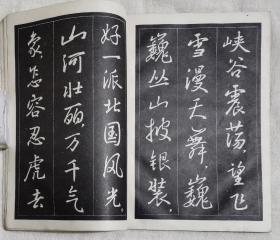 峡谷震荡，望飞
雪漫天舞，巍
巍丛山披银装，
好一派北国风光。
山河壮丽，万千气
象，怎容忍虎去